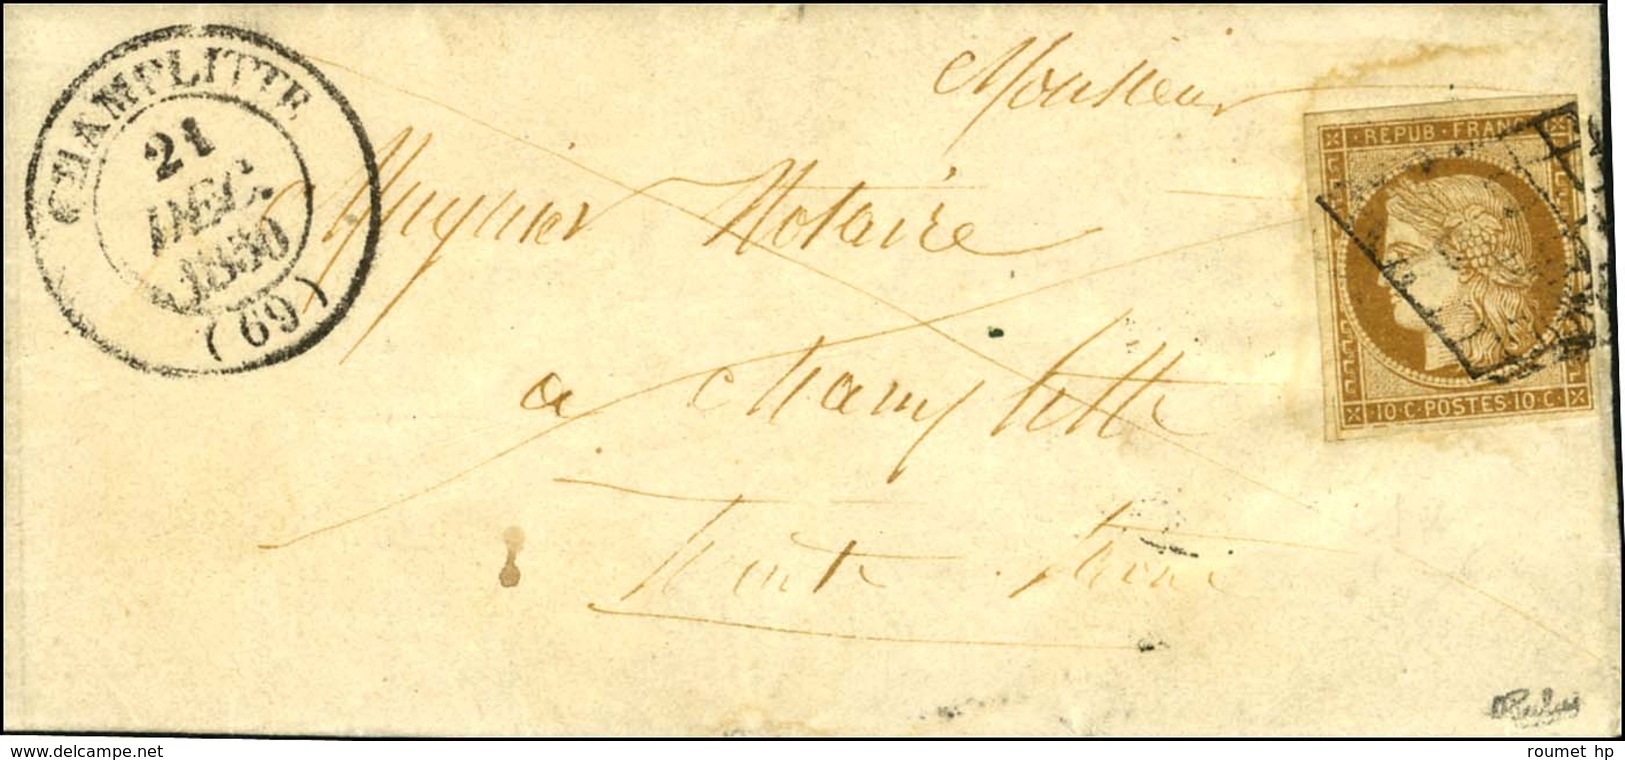 CHAMPLITTE
21
DEC.
1850
(69)
Monsieur
Muguier Notaire
a Champlitte
haute Saône
REPUB FRANC
10·C·POSTES·10·C·
www.delcampe.net
roumet hp